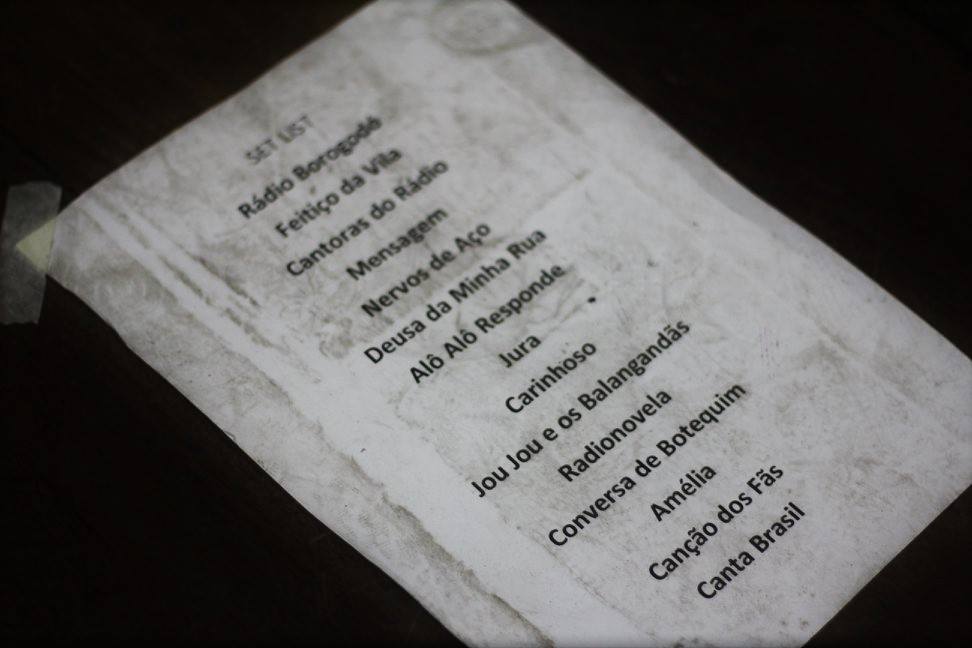 SET LIST
Rádio Borogodó
Feitiço da Vila
Cantoras do Rádio
Mensagem
Nervos de Aço
Deusa da Minha Rua
Alô Alô Responde
Jura
Carinhoso
Jou Jou e os Balangandãs
Radionovela
Conversa de Botequim
Amélia
Canção dos Fãs
Canta Brasil